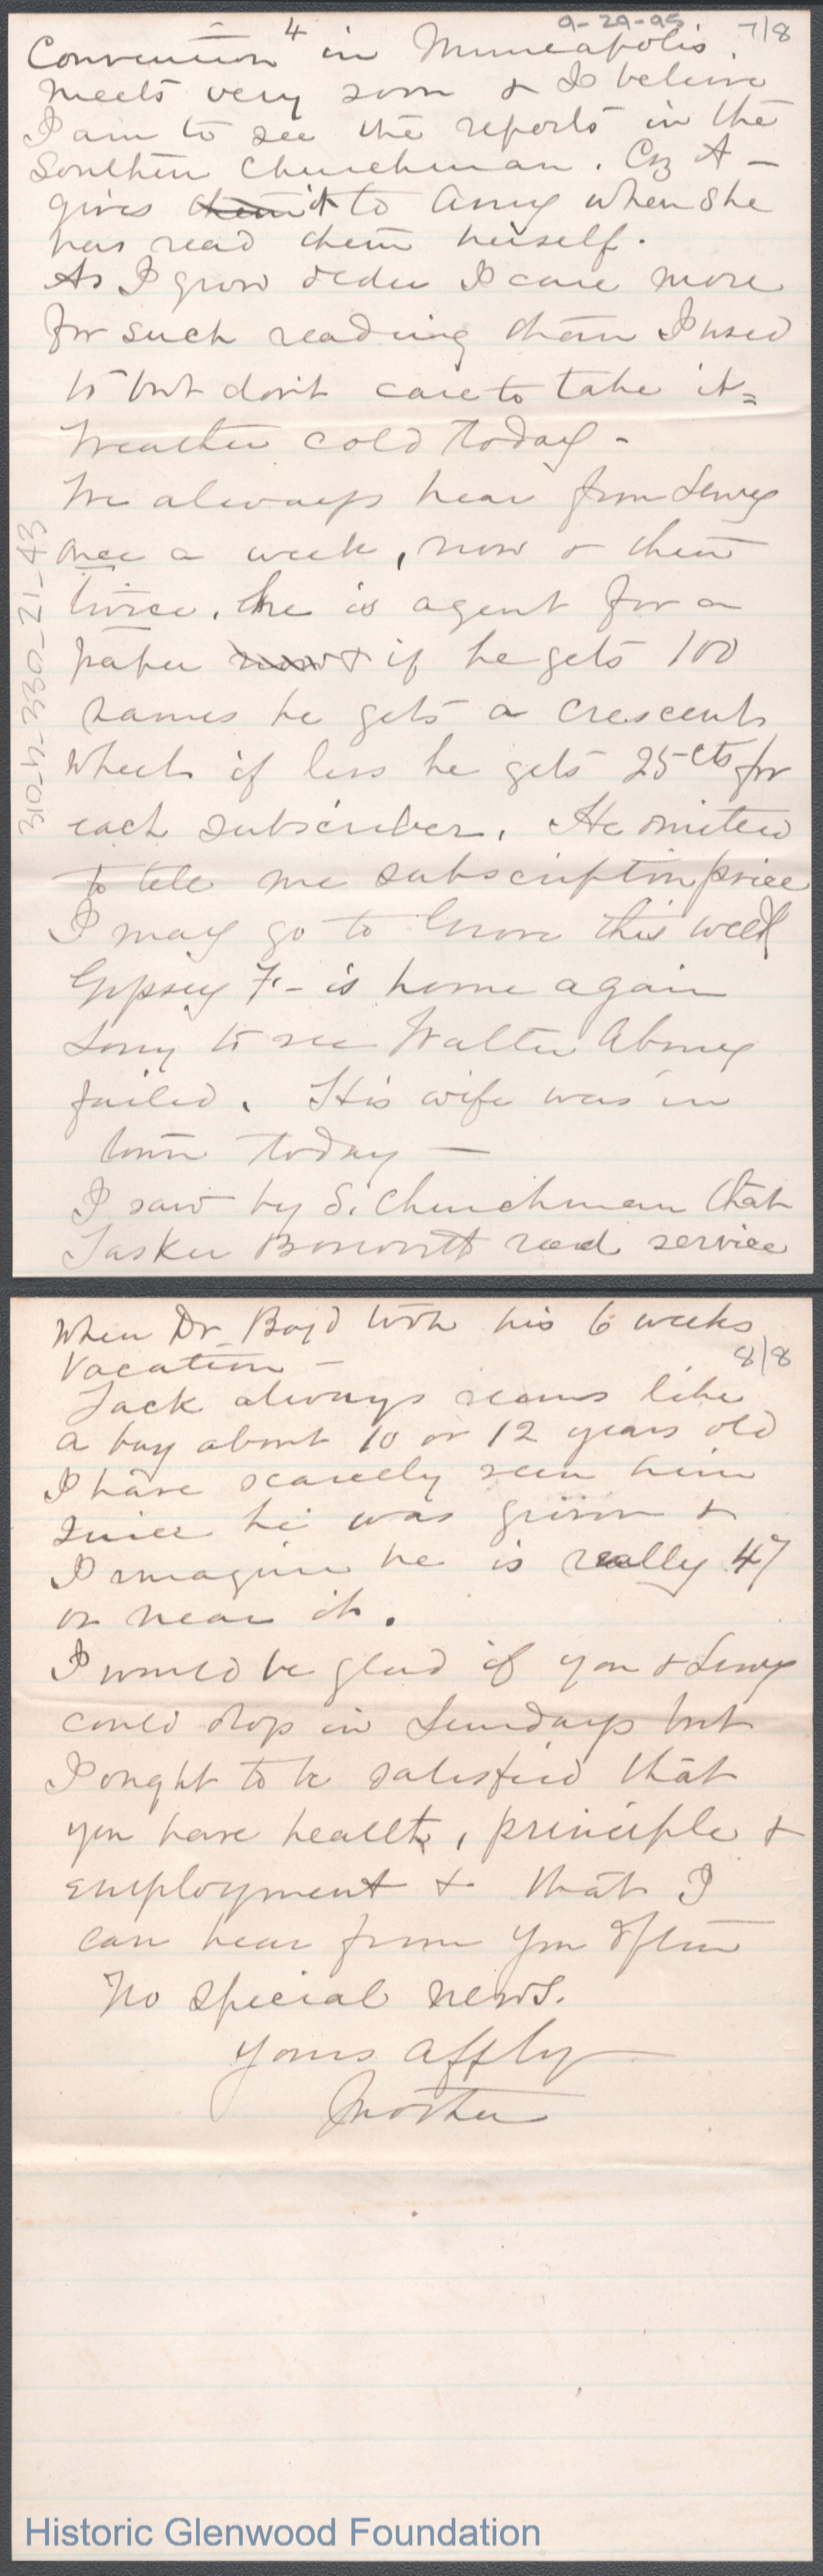 4 9-29-95 7/8
Convention in Minneapolis.
meets very soon & I believe
I am to see the reports in the
Southern Churchman. Coz A -
gives them it to Amy when she
has read them herself.
As I grow older I care more
for such reading than I used
to but don't care to take it =
Weather cold today -
We always hear from Lewy
once a week, now & then
twice. he is agent for a
paper now & if he gets 100
names he gets a Crescent
Wheel if less he gets 25 cts for
each subscriber. He omitted
to tell me subscription price
I may go to Grove this week
Gypsey F - is home again
Sorry to see Walter Abney
failed. His wife was in
town today -
I saw by S. Churchman that
Tasker Bosworth read service
310-h-330-21-43
When Dr Boyd took his 6 weeks
8/8
vacation -
Jack always seems like
a boy about 10 or 12 years old
I have scarcely seen him
since he was grown &
I imagine he is really 47
or near it.
I would be glad if you & Lewy
could drop in Sundays but
I ought to be satisfied that
you have health, principle &
employment & that I
can hear from you often
No special news.
Yours affly
Mother
Historic Glenwood Foundation